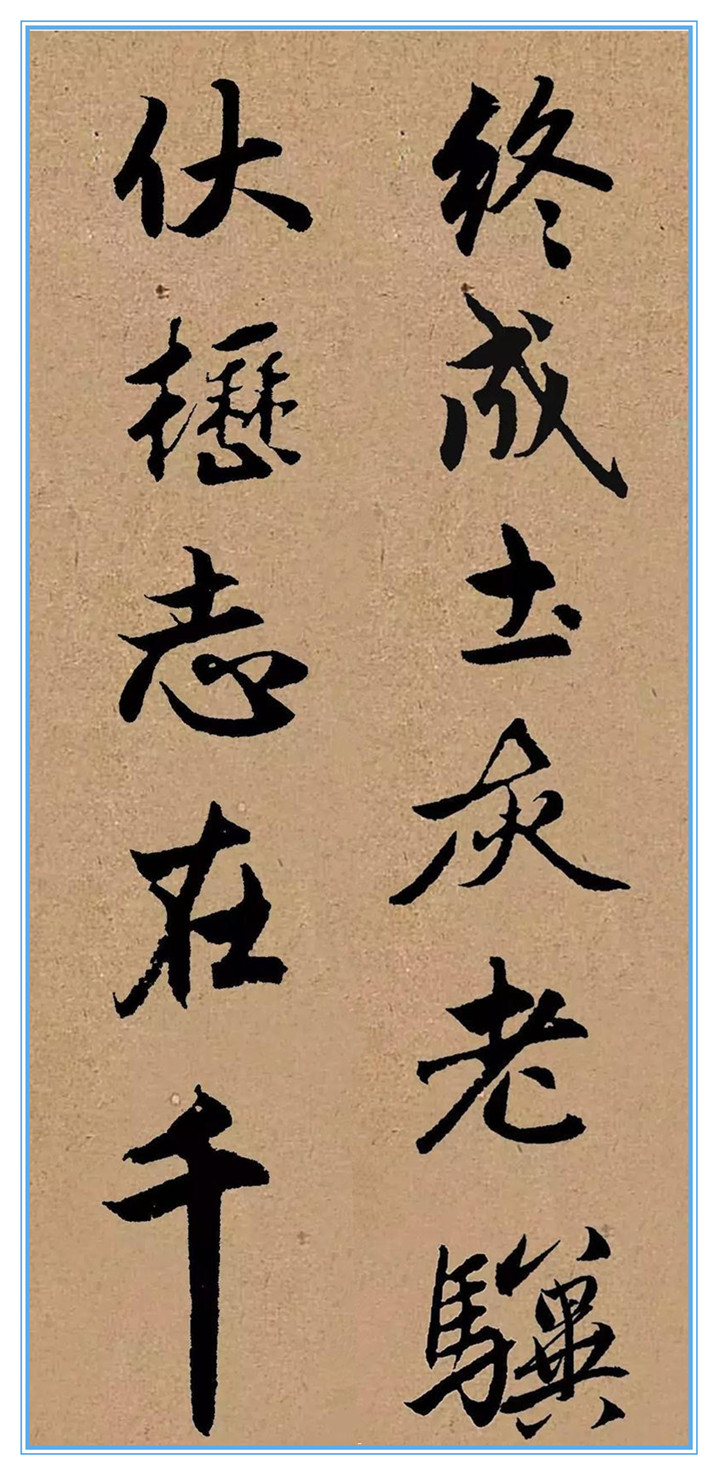 終成土灰老驥
伏櫪志在千